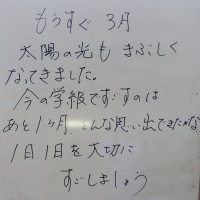 もうすぐ 3月
太陽の光も まぶしく
なってきました。
今の学級ですごすのは
あと1ヶ月 どんな思い出できたかな
1日1日を大切に
すごしましょう